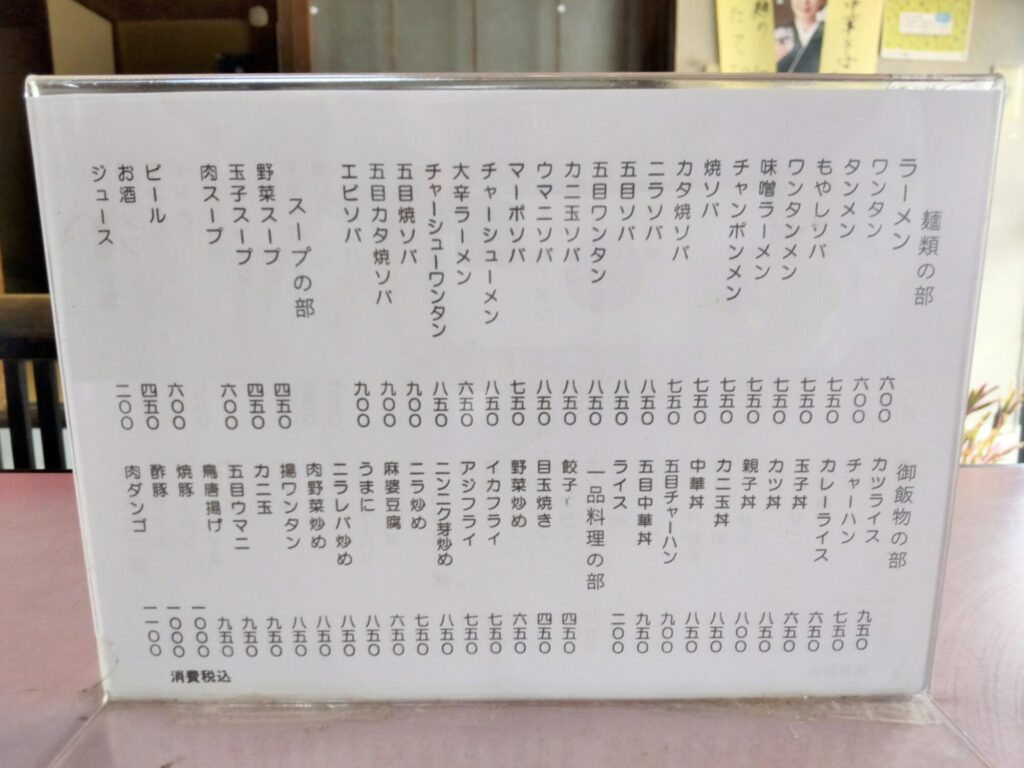 麺類の部
ラーメン 六〇〇
ワンタン 六〇〇
タンメン 七五〇
もやしソバ 七五〇
ワンタンメン 七五〇
味噌ラーメン 七五〇
チャンポンメン 七五〇
焼ソバ 七五〇
カタ焼ソバ 七五〇
ニラソバ 八五〇
五目ソバ 八五〇
五目ワンタン 八五〇
カニ玉ソバ 八五〇
ウマニソバ 八五〇
マーボソバ 七五〇
チャーシューメン 八五〇
大辛ラーメン 六五〇
チャーシューワンタン 八五〇
五目焼ソバ 九〇〇
五目カタ焼ソバ 九〇〇
エビソバ 九〇〇
スープの部
野菜スープ 四五〇
玉子スープ 四五〇
肉スープ 六〇〇
ビール 六〇〇
お酒 四五〇
ジュース 二〇〇
御飯物の部
カツライス 九五〇
チャーハン 七五〇
カレーライス 六五〇
玉子丼 六五〇
カツ丼 八五〇
親子丼 八〇〇
カニ玉丼 八五〇
中華丼 八五〇
五目チャーハン 九〇〇
五目中華丼 九五〇
ライス 二〇〇
一品料理の部
餃子 四五〇
目玉焼き 四五〇
野菜炒め 六五〇
イカフライ 七五〇
アジフライ 七五〇
ニンニク芽炒め 八五〇
ニラ炒め 七五〇
麻婆豆腐 六五〇
うまに 八五〇
ニラレバ炒め 八五〇
肉野菜炒め 八五〇
揚ワンタン 八五〇
カニ玉 九五〇
五目ウマニ 九五〇
鳥唐揚げ 九五〇
焼豚 一〇〇〇
酢豚 一〇〇〇
肉ダンゴ 一一〇〇
消費税込